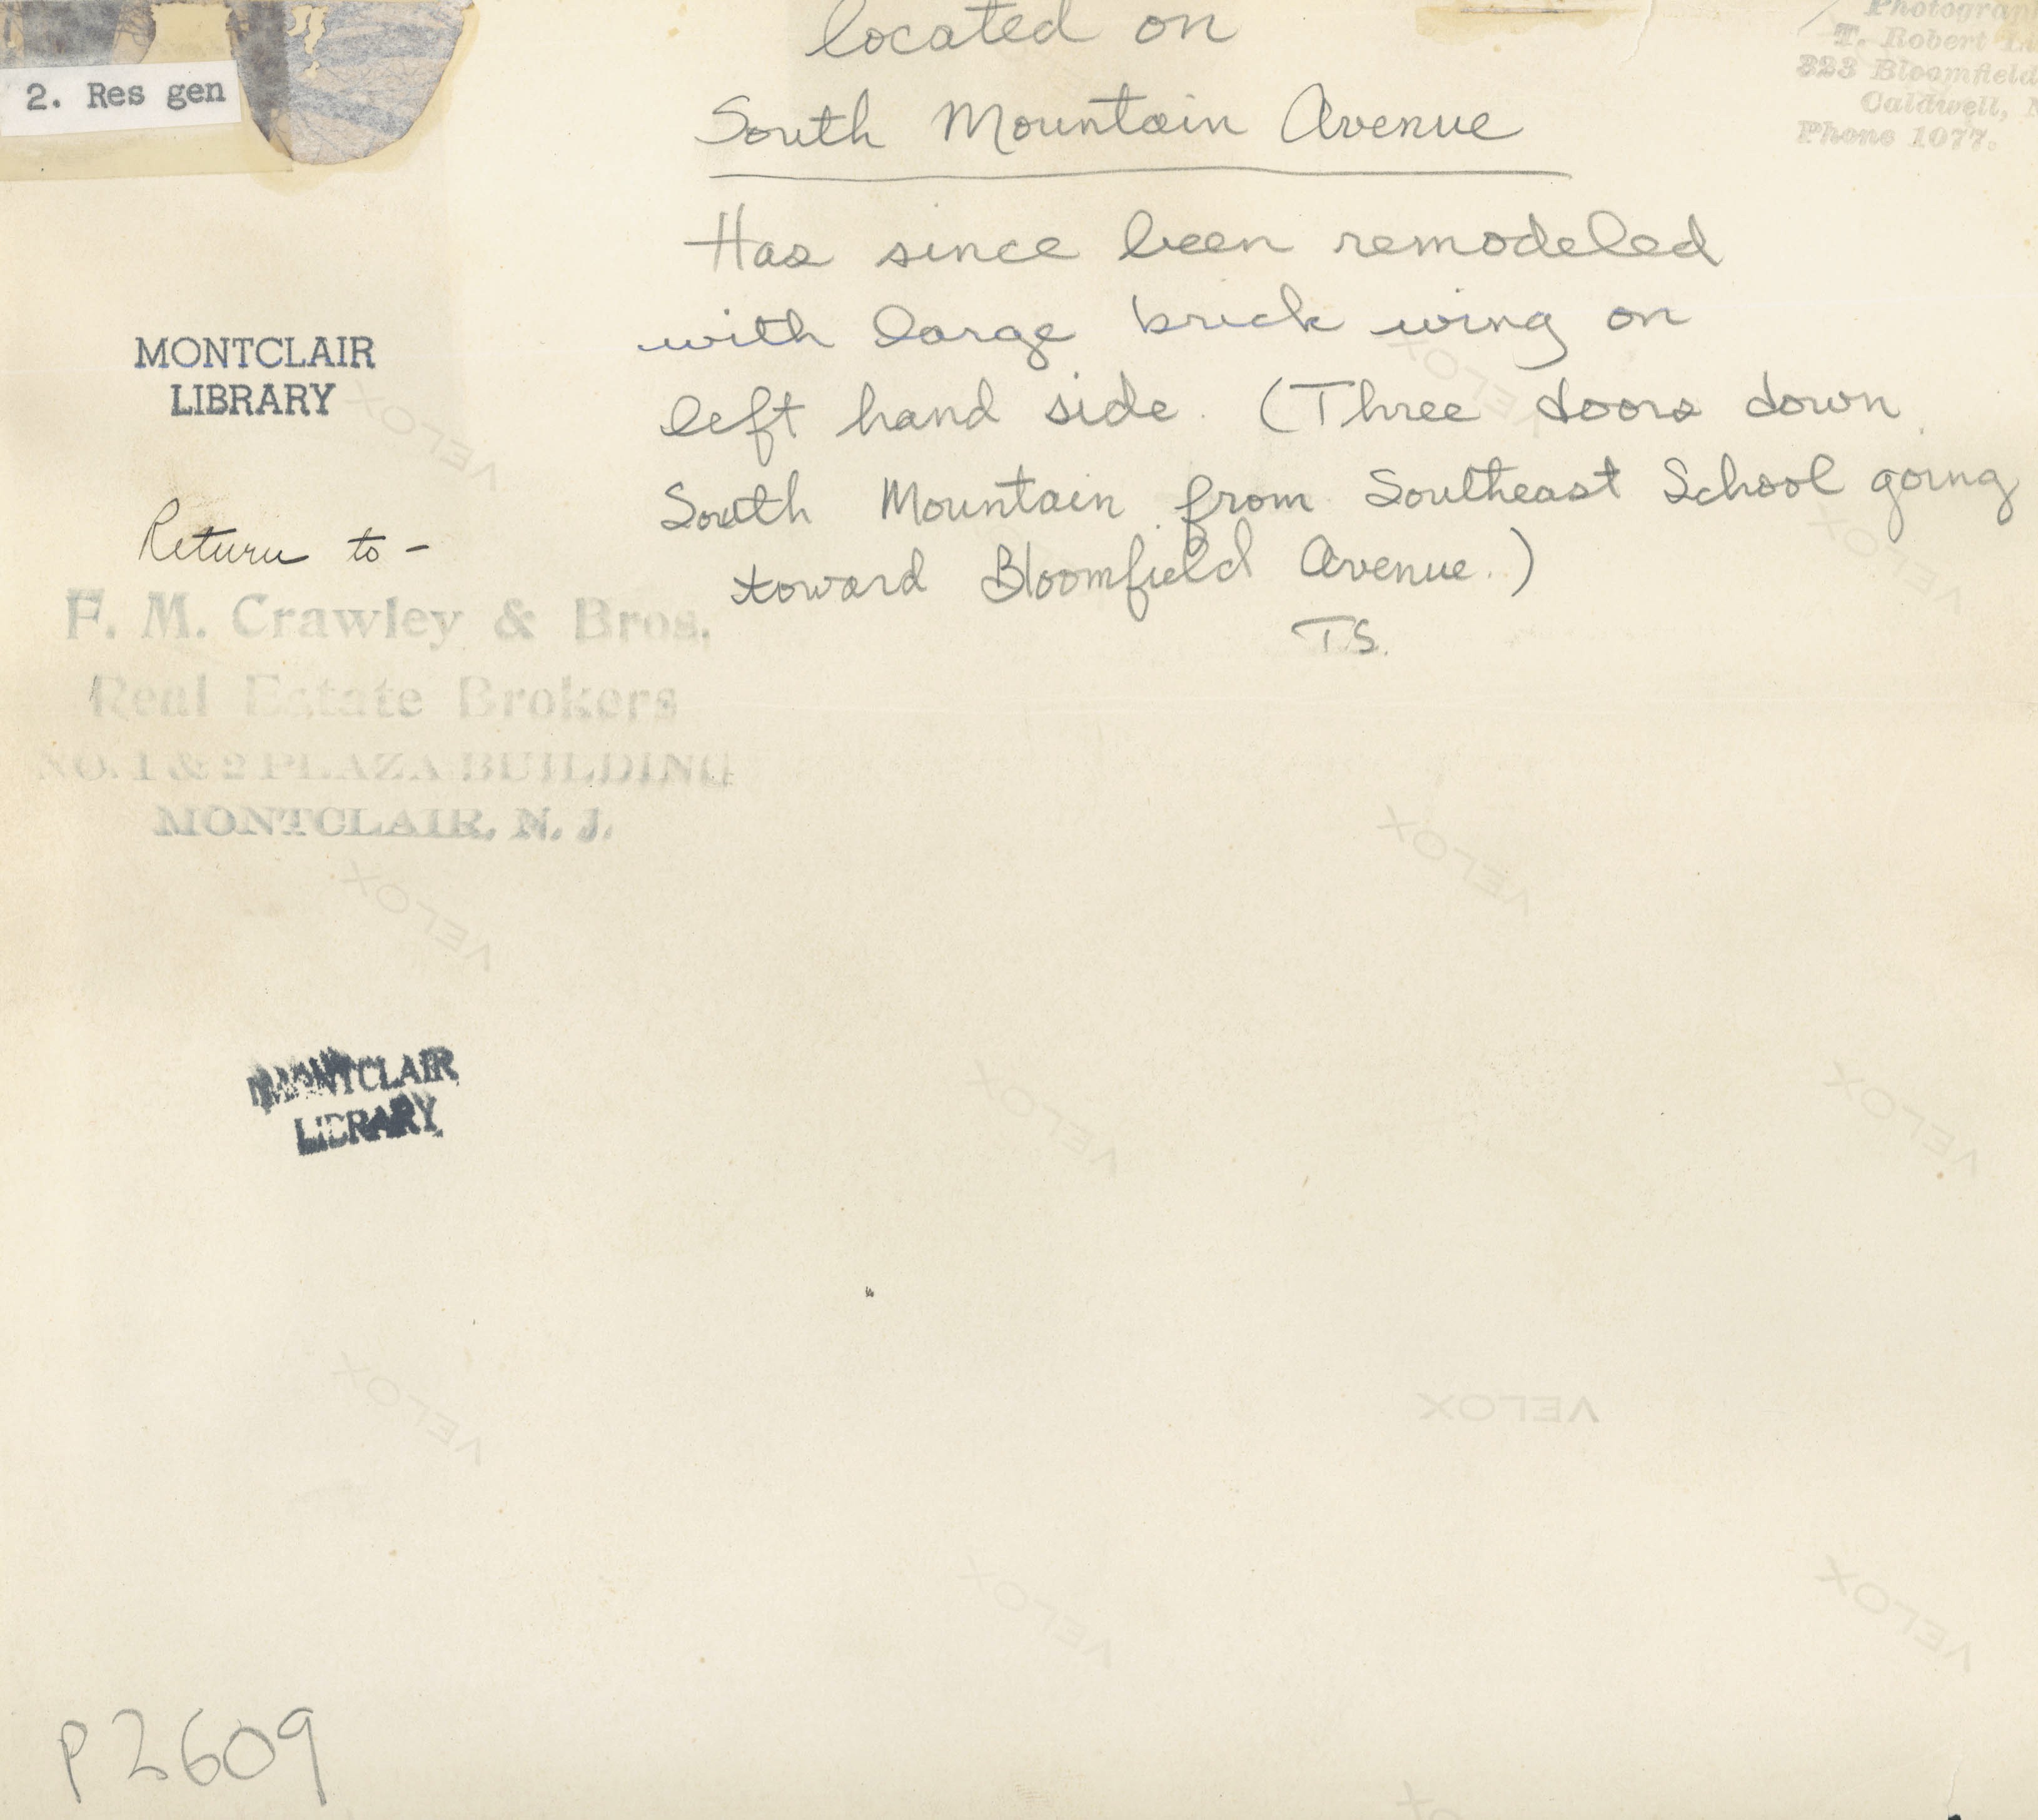 located on
South Mountain Avenue
Has since been remodeled
with large brick wing on
left hand side. (Three doors down
South Mountain from Southeast School going
toward Bloomfield Avenue.)
T.S.
2. Res gen
MONTCLAIR
LIBRARY
Return to -
F. M. Crawley & Bros.
Real Estate Brokers
NO. 1 & 2 PLAZA BUILDING
MONTCLAIR, N. J.
T. Robert
323 Bloomfield
Caldwell,
Phone 1077.
MONTCLAIR
LIBRARY
VELOX
VELOX
VELOX
VELOX
VELOX
VELOX
VELOX
VELOX
VELOX
VELOX
VELOX
P2609